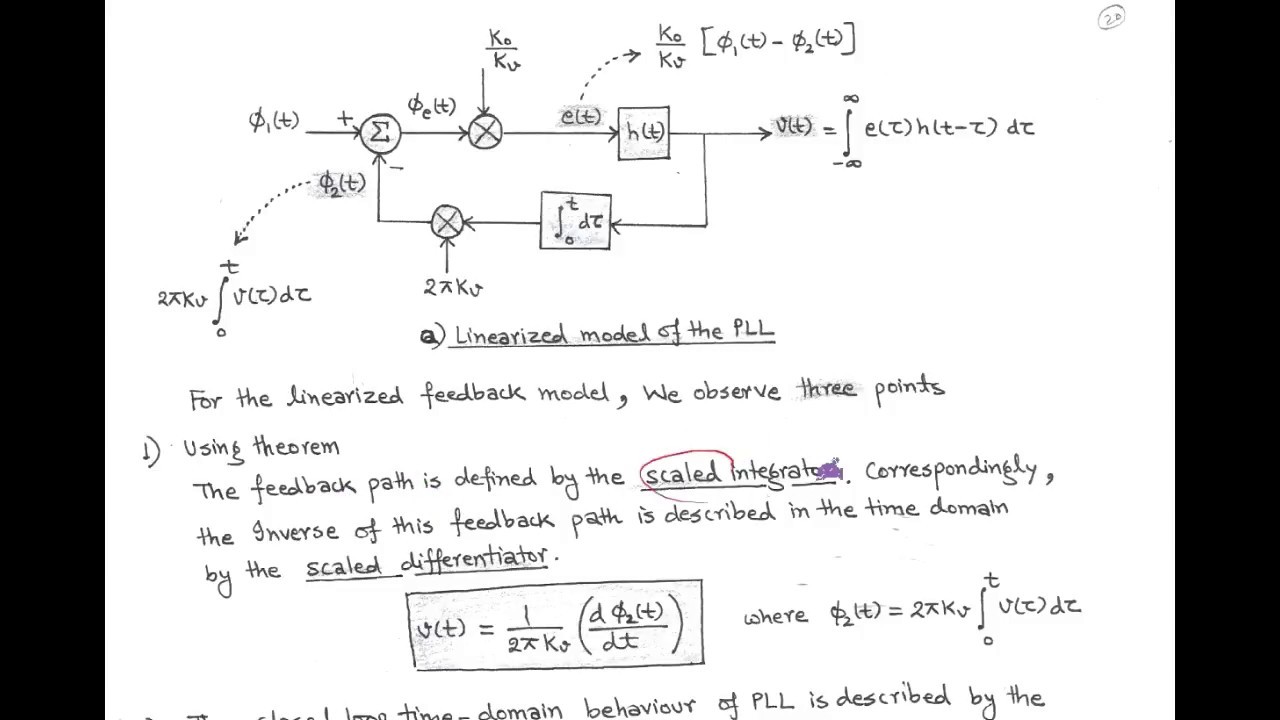 20
K₀/Kᵥ
K₀/Kᵥ [ϕ₁(t) - ϕ₂(t)]
ϕ₁(t) + Σ ϕₑ(t) × e(t) h(t) v(t) = ∫_{-∞}^{∞} e(τ) h(t-τ) dτ
−
ϕ₂(t)
× ∫₀ᵗ dτ
2πKᵥ ∫₀ᵗ v(τ)dτ
2πKᵥ
a) Linearized model of the PLL
For the linearized feedback model, We observe three points
1) Using theorem
The feedback path is defined by the scaled integrator. Correspondingly,
the Inverse of this feedback path is described in the time domain
by the scaled differentiator.
v(t) = 1/(2πKᵥ) (dϕ₂(t)/dt) where ϕ₂(t) = 2πKᵥ ∫₀ᵗ v(τ)dτ
closed loop time-domain behaviour of PLL is described by the